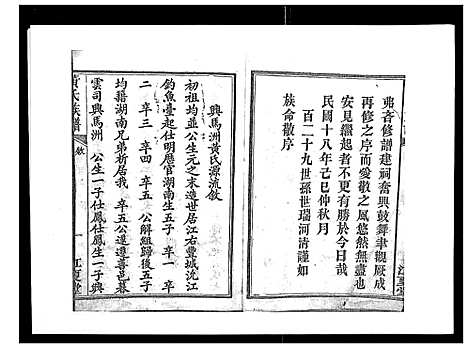 弗吝修譜建祠奮興鼓舞聿觀厥成
再修之序而愛敬之風悠然無盡
安見繼起者不更有勝於今日哉
民國十八年己巳仲秋月
百二十九世孫世瑞河清謹如
族命敬序
興馬洲黃氏源流敘
初祖均並公生元之末造世居江右豐城沇江
釣魚臺起仕明應官湖南生五子 卒一
二 卒三 卒四 卒五 公解組歸後五子
均籍湖南兄弟析居我 卒五公運遵善邑暮
雲司興馬洲 公生一子仕鳳仕鳳生一子興
黃氏族譜
敘
一
江夏堂